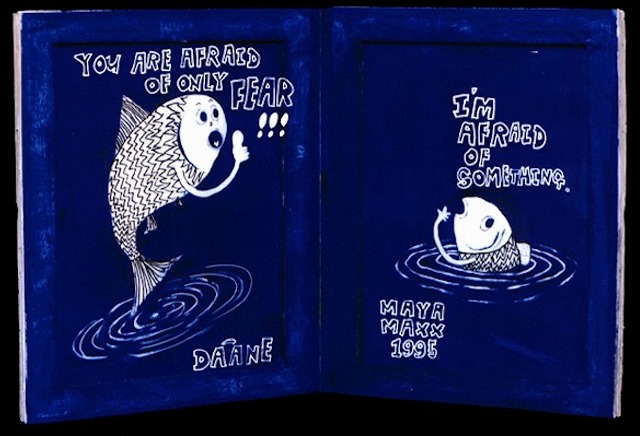 YOU ARE AFRAID
OF ONLY FEAR
!!!
DAĪANE
I'M
AFRAID
OF
SOMETHING.
MAYA
MAXX
1995